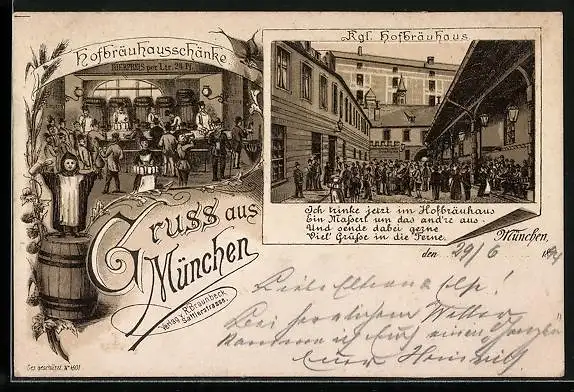 Hofbräuhausschänke
BIERPREIS per Ltr. 24 Pf.
Kgl. Hofbräuhaus
Ich trinke jetzt im Hofbräuhaus
Ein Masserl um das and're aus
Und sende dabei gerne
Viel' Grüsse in die Ferne.
Gruss aus
München
Verlag v. R. Braunbeck
Sattlerstrasse.
München,
den 29/6 189
Liebe Eltern
Bei herrlichem Wetter
einen
Euer Heinrich
Ges. geschützt. № 1601